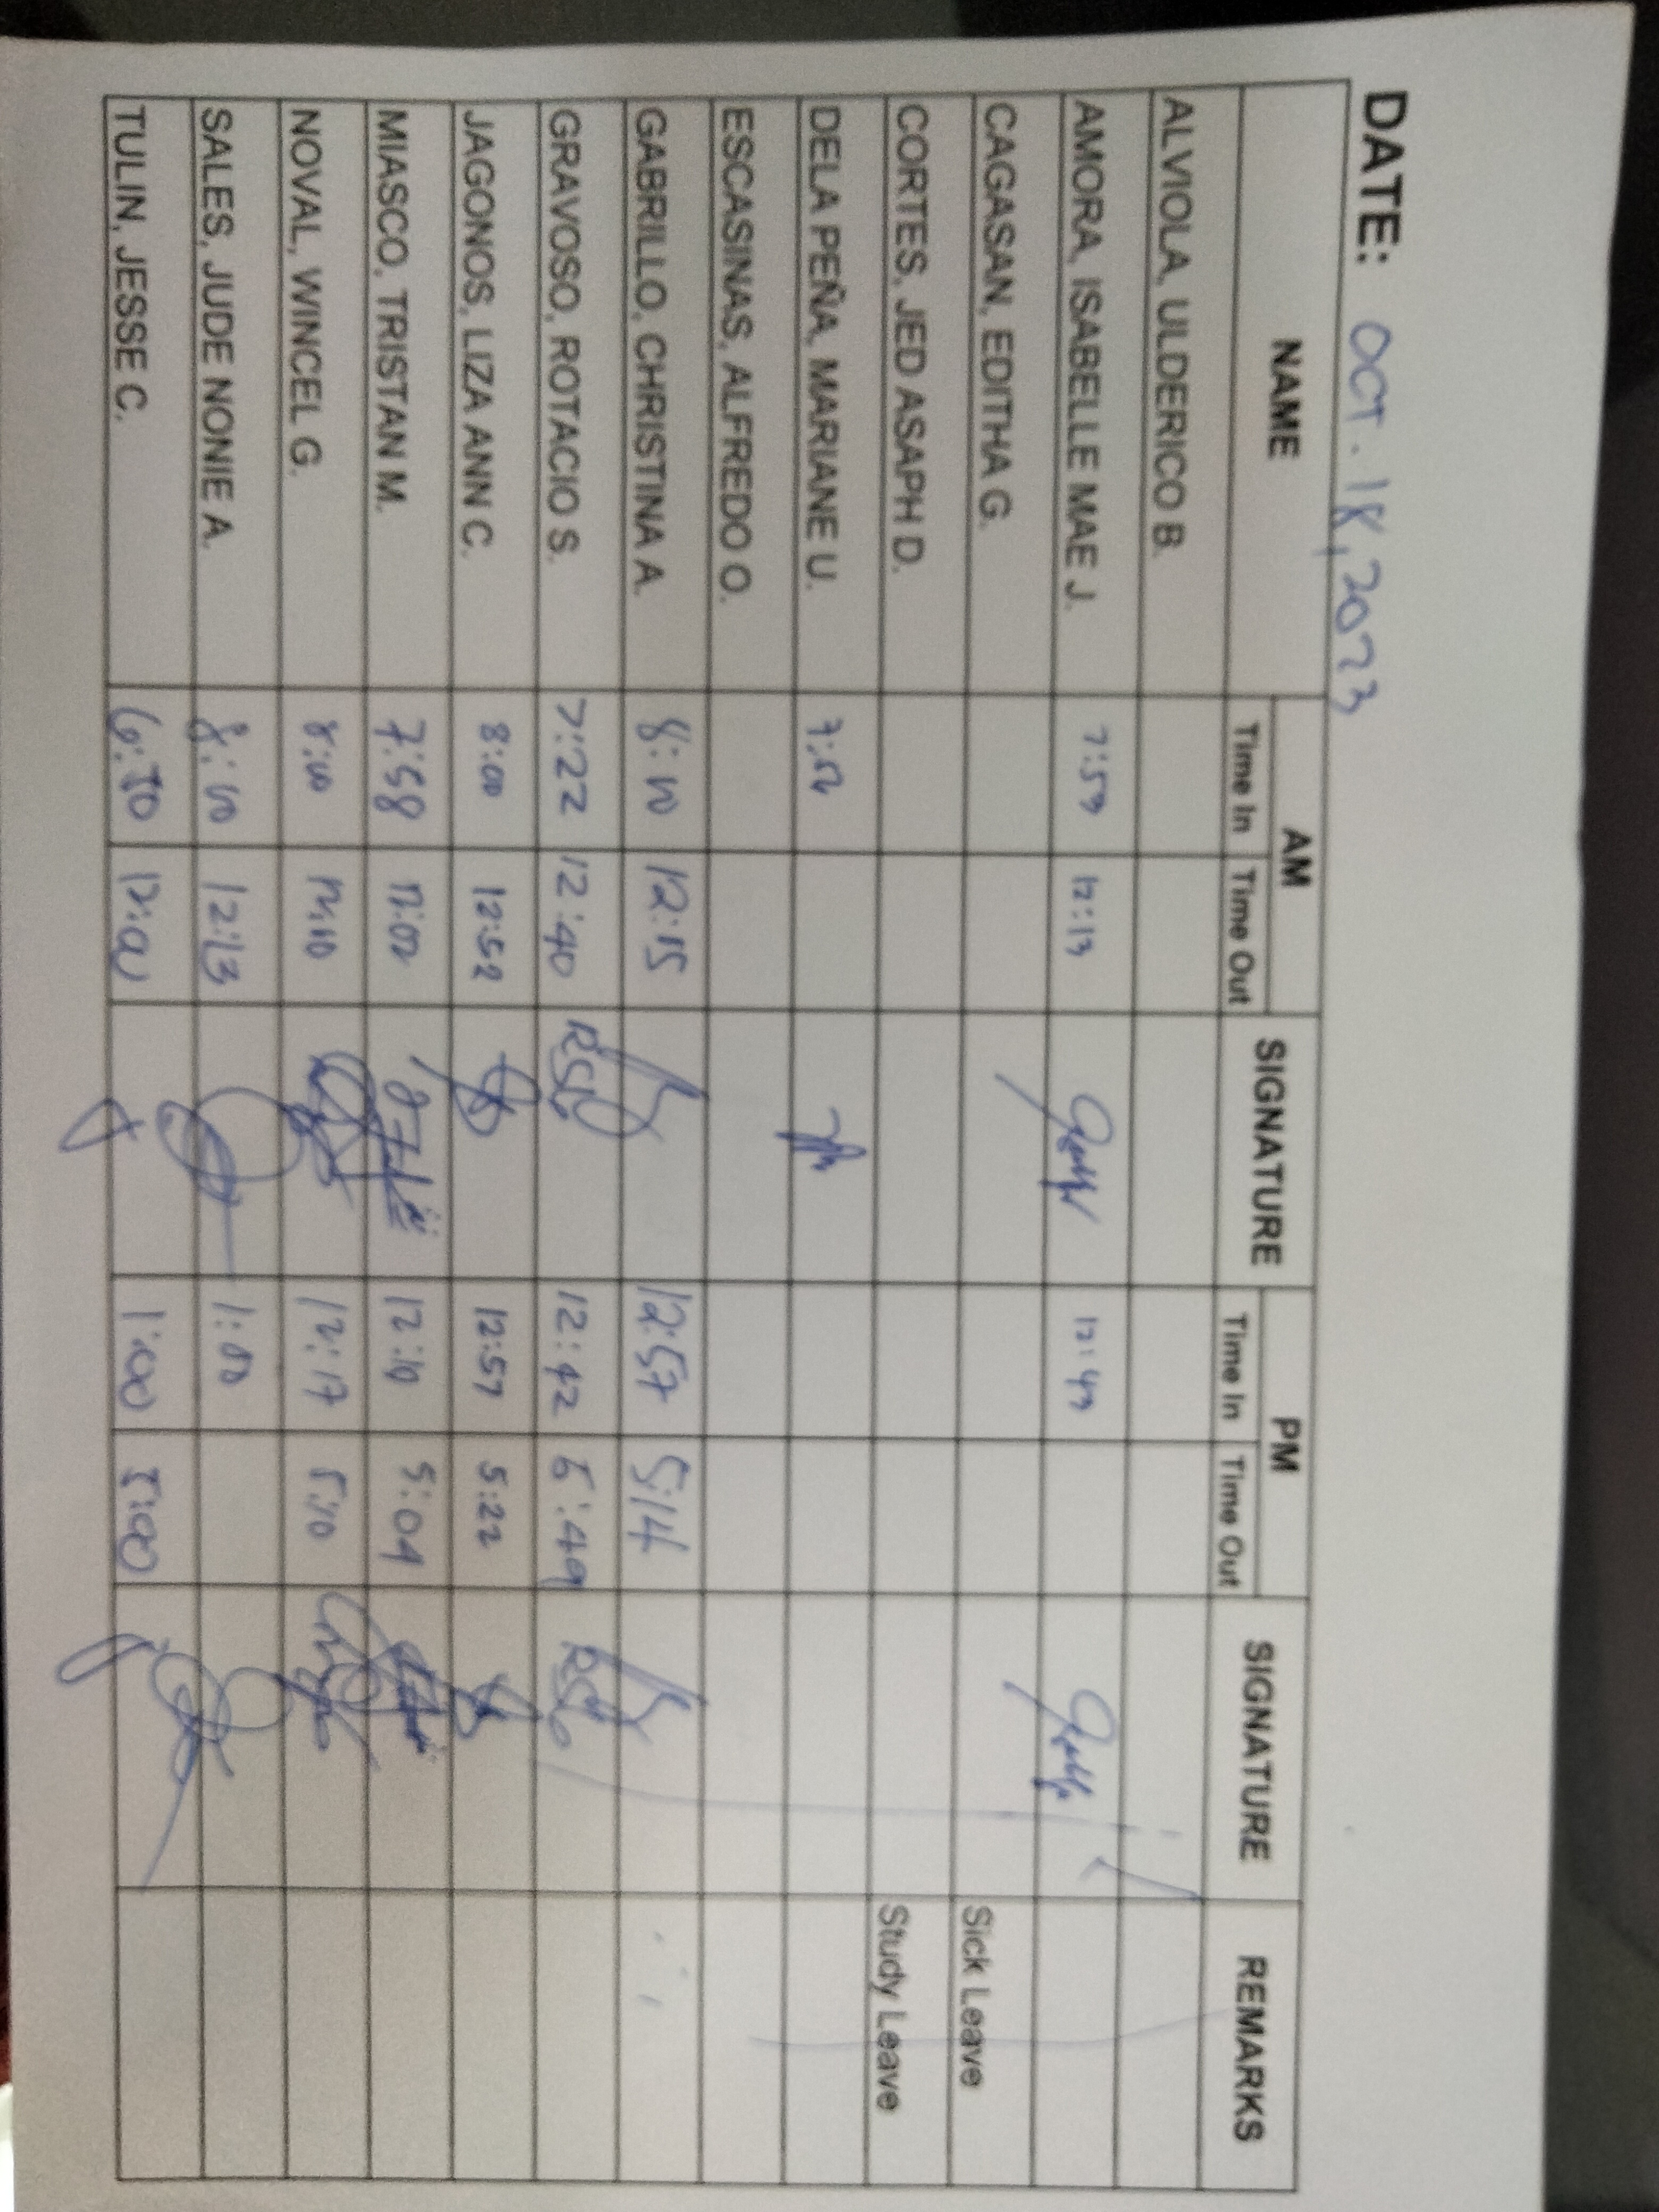 DATE: OCT. 18, 2023
NAME AM SIGNATURE PM SIGNATURE REMARKS
Time In Time Out Time In Time Out
ALVIOLA, ULDERICO B.
AMORA, ISABELLE MAE J. 7:59 12:13 12:49
CAGASAN, EDITHA G. Sick Leave
CORTES, JED ASAPH D. Study Leave
DELA PEÑA, MARIANE U.
ESCASINAS, ALFREDO O.
GABRILLO, CHRISTINA A. 8:00 12:15 12:57 5:14
GRAVOSO, ROTACIO S. 7:22 12:40 RSG 12:42 6:49 RSG
JAGONOS, LIZA ANN C. 8:00 12:52 12:57 5:22
MIASCO, TRISTAN M. 7:58 12:02 12:10 5:04
NOVAL, WINCEL G. 8:00 12:10 12:17 5:10
SALES, JUDE NONIE A. 8:00 12:13 1:00
TULIN, JESSE C. 12:00 1:00 5:00